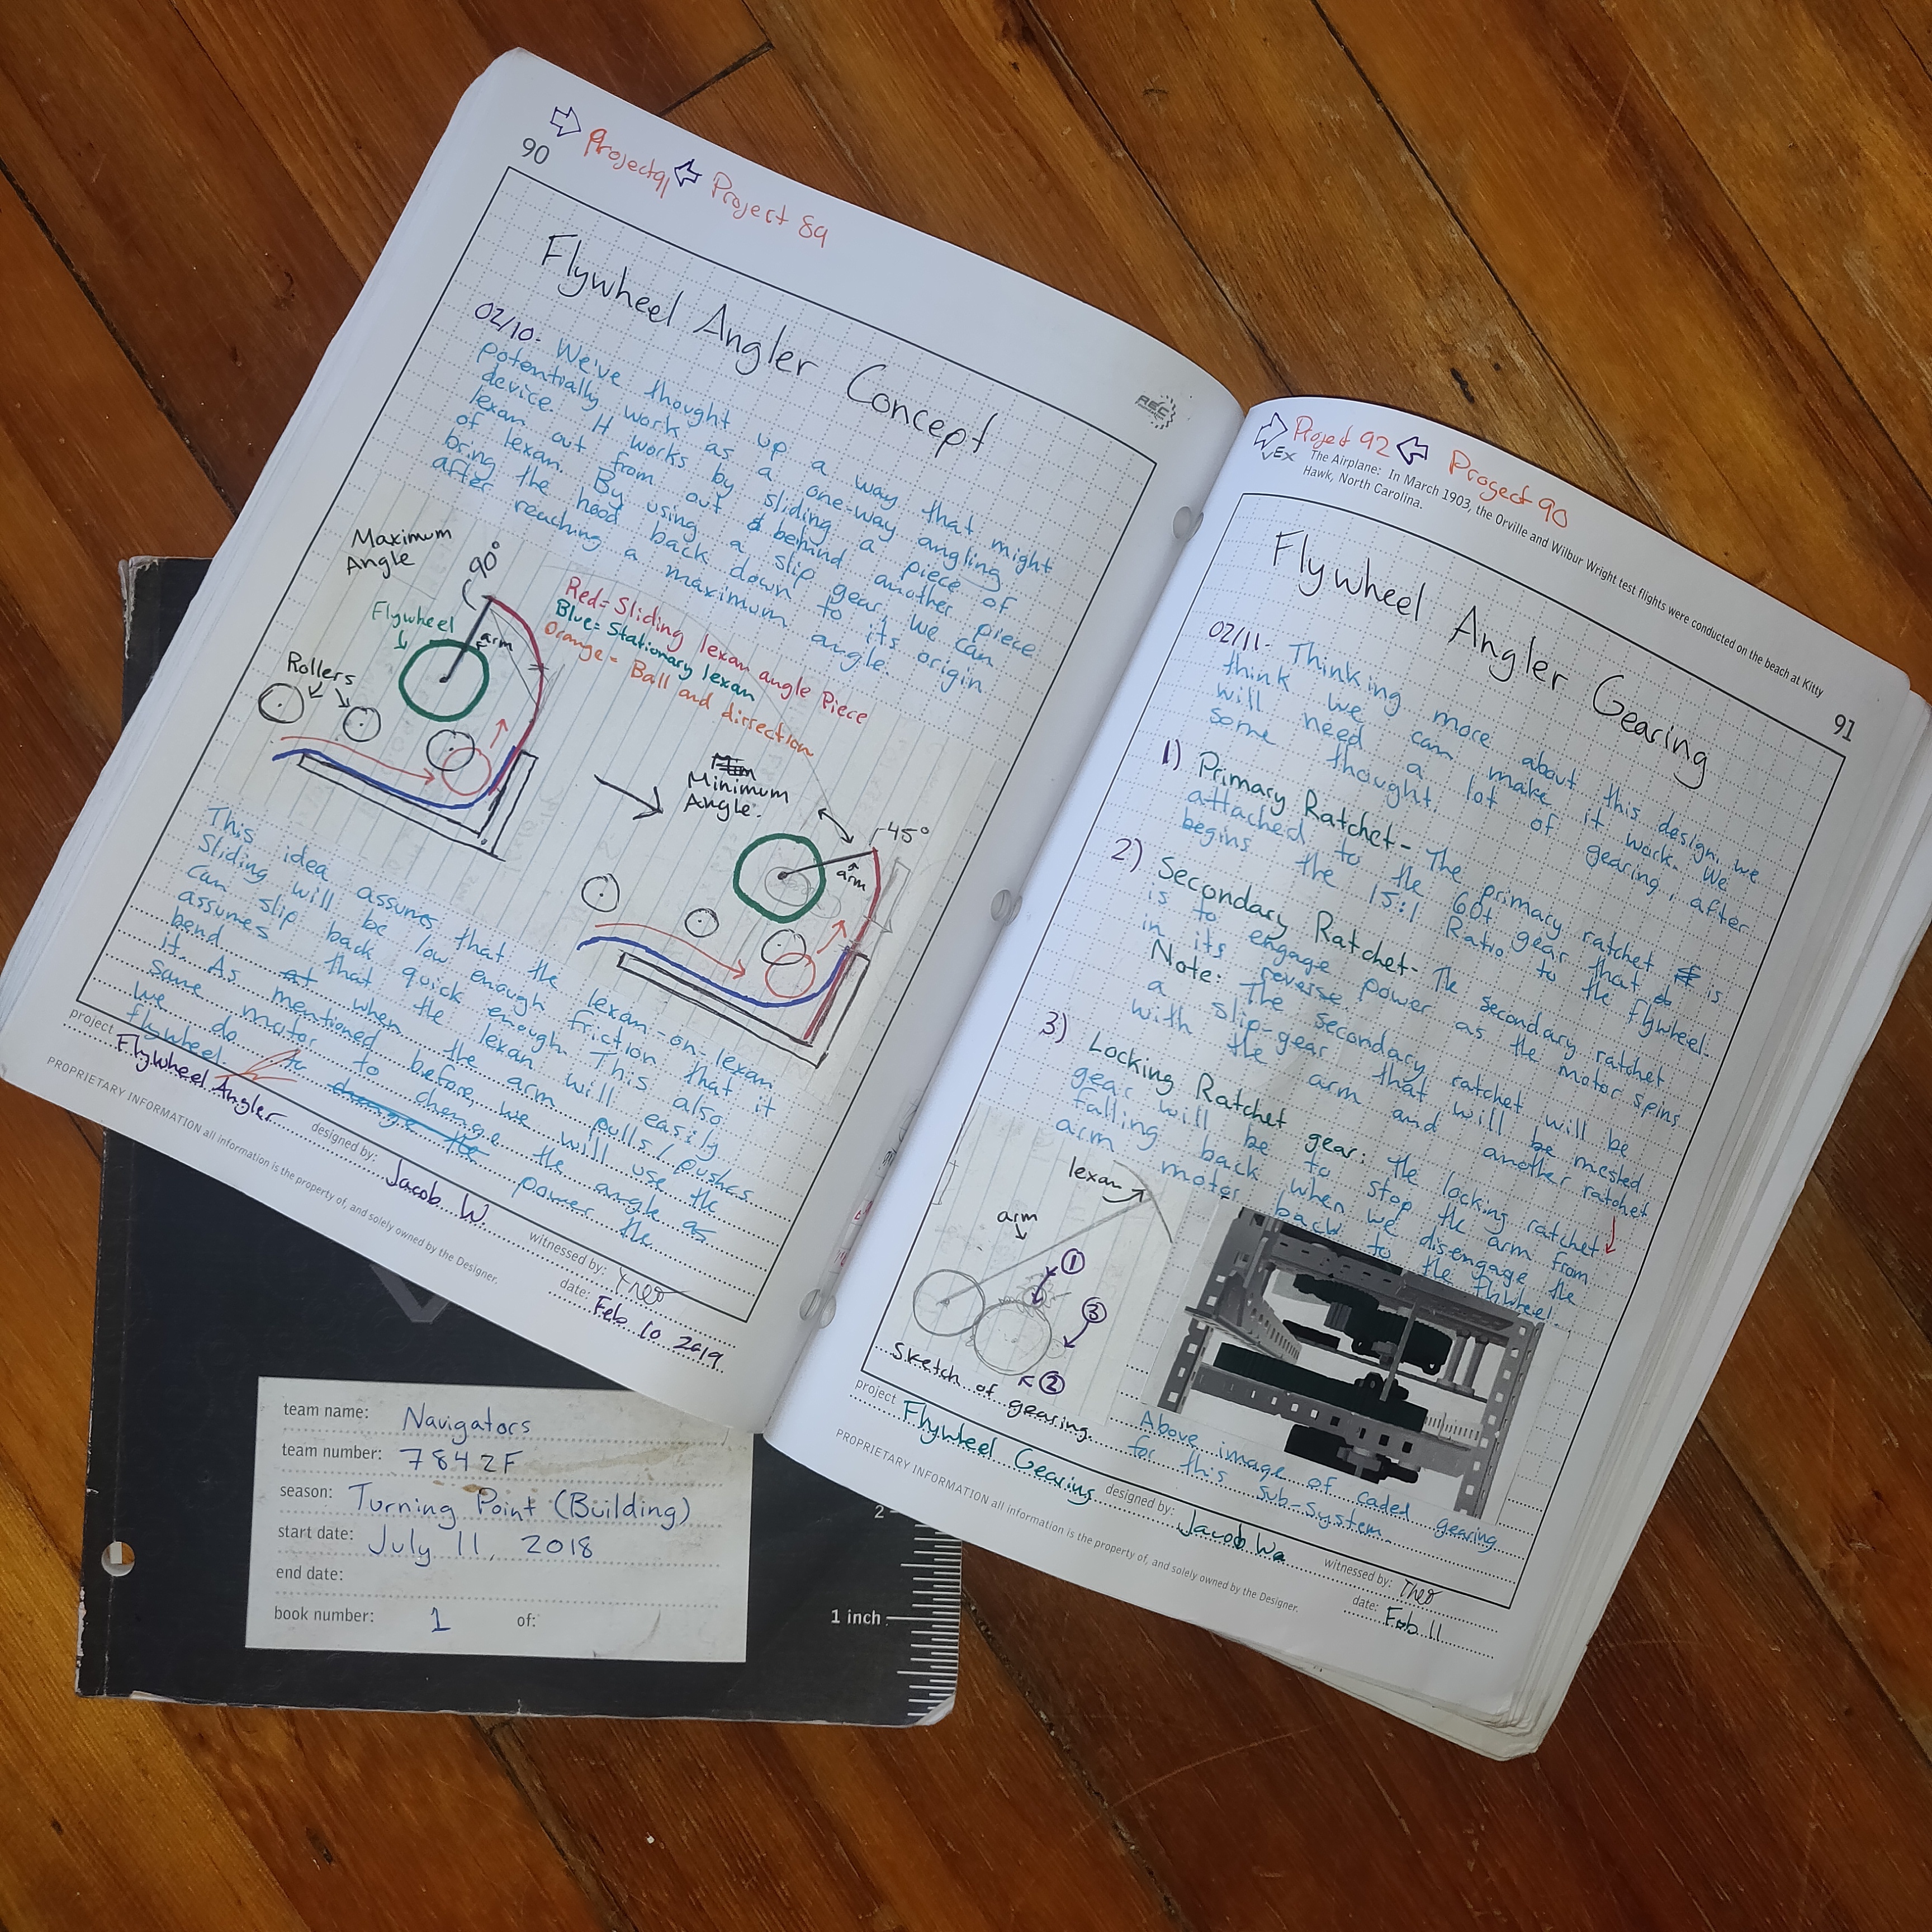 ⇨ Project 91 ⇦ Project 89
90
Flywheel Angler Concept
02/10- We've thought up a way that might
potentially work as a one-way angling
device. It works by sliding a piece of
lexan out from out & behind another piece
of lexan. By using a slip gear, we can
bring the hood back down to its origin
after reaching a maximum angle.
Maximum
Angle
90°
Flywheel
arm
Rollers
Red= Sliding lexan angle Piece
Blue= Stationary lexan
Orange= Ball and dirsection
Minimum
Angle:
45°
arm
This idea assumes that the lexan-on-lexan
Sliding will be low enough friction that it
can slip back quick enough. This also
assumes that the lexan will easily
bend at when the arm pulls/pushes
it. As mentioned before, we will use the
same motor to change the angle as
we do to change the power the
flywheel.
project Flywheel Angler
designed by: Jacob W.
witnessed by: Theo
date: Feb 10 2019
PROPRIETARY INFORMATION all information is the property of, and solely owned by the Designer.
REC
⇨ Project 92 ⇦ Project 90
VEX
The Airplane: In March 1903, the Orville and Wilbur Wright test flights were conducted on the beach at Kitty
Hawk, North Carolina.
91
Flywheel Angler Gearing
02/11- Thinking more about this design, we
think we can make it work. We
will need a lot of gearing, after
some thought.
1) Primary Ratchet- The primary ratchet is
attached to the 60t gear that
begins the 15:1 Ratio to the flywheel.
2) Secondary Ratchet- The secondary ratchet
is to engage power as the motor spins
in its reverse
Note: The secondary ratchet will be
a slip-gear that will be meshed
with the arm and another ratchet
3) Locking Ratchet gear: the locking ratchet
gear will be to stop the arm from
falling back when we disengage the
arm motor back to the flywheel.
lexan
arm
1
3
2
Sketch of gearing
Above image of caded gearing
for this sub-system
project Flywheel Gearing
designed by: Jacob Wa
witnessed by: Theo
date: Feb 11
PROPRIETARY INFORMATION all information is the property of, and solely owned by the Designer.
team name: Navigators
team number: 7842F
season: Turning Point (Building)
start date: July 11, 2018
end date:
book number: 1 of:
2
1 inch